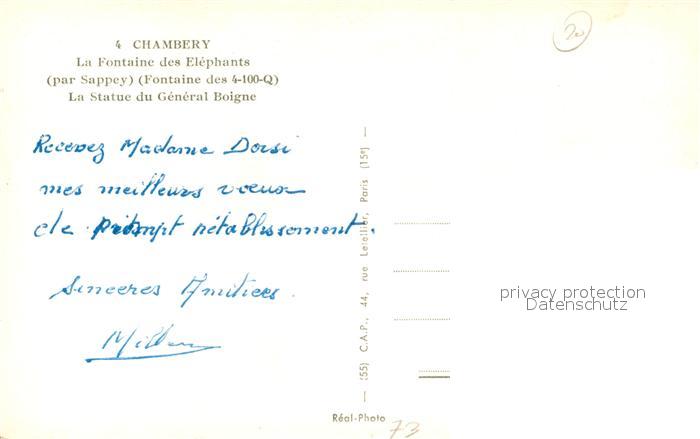 4 CHAMBERY
La Fontaine des Eléphants
(par Sappey) (Fontaine des 4-100-Q)
La Statue du Général Boigne
Recevez Madame Dorsi
mes meilleurs voeux
de prompt rétablissement.
Sinceres Amitiees.
(55) C.A.P., 44, rue Letellier, Paris (15e)
Réal-Photo
73
20
privacy protection
Datenschutz